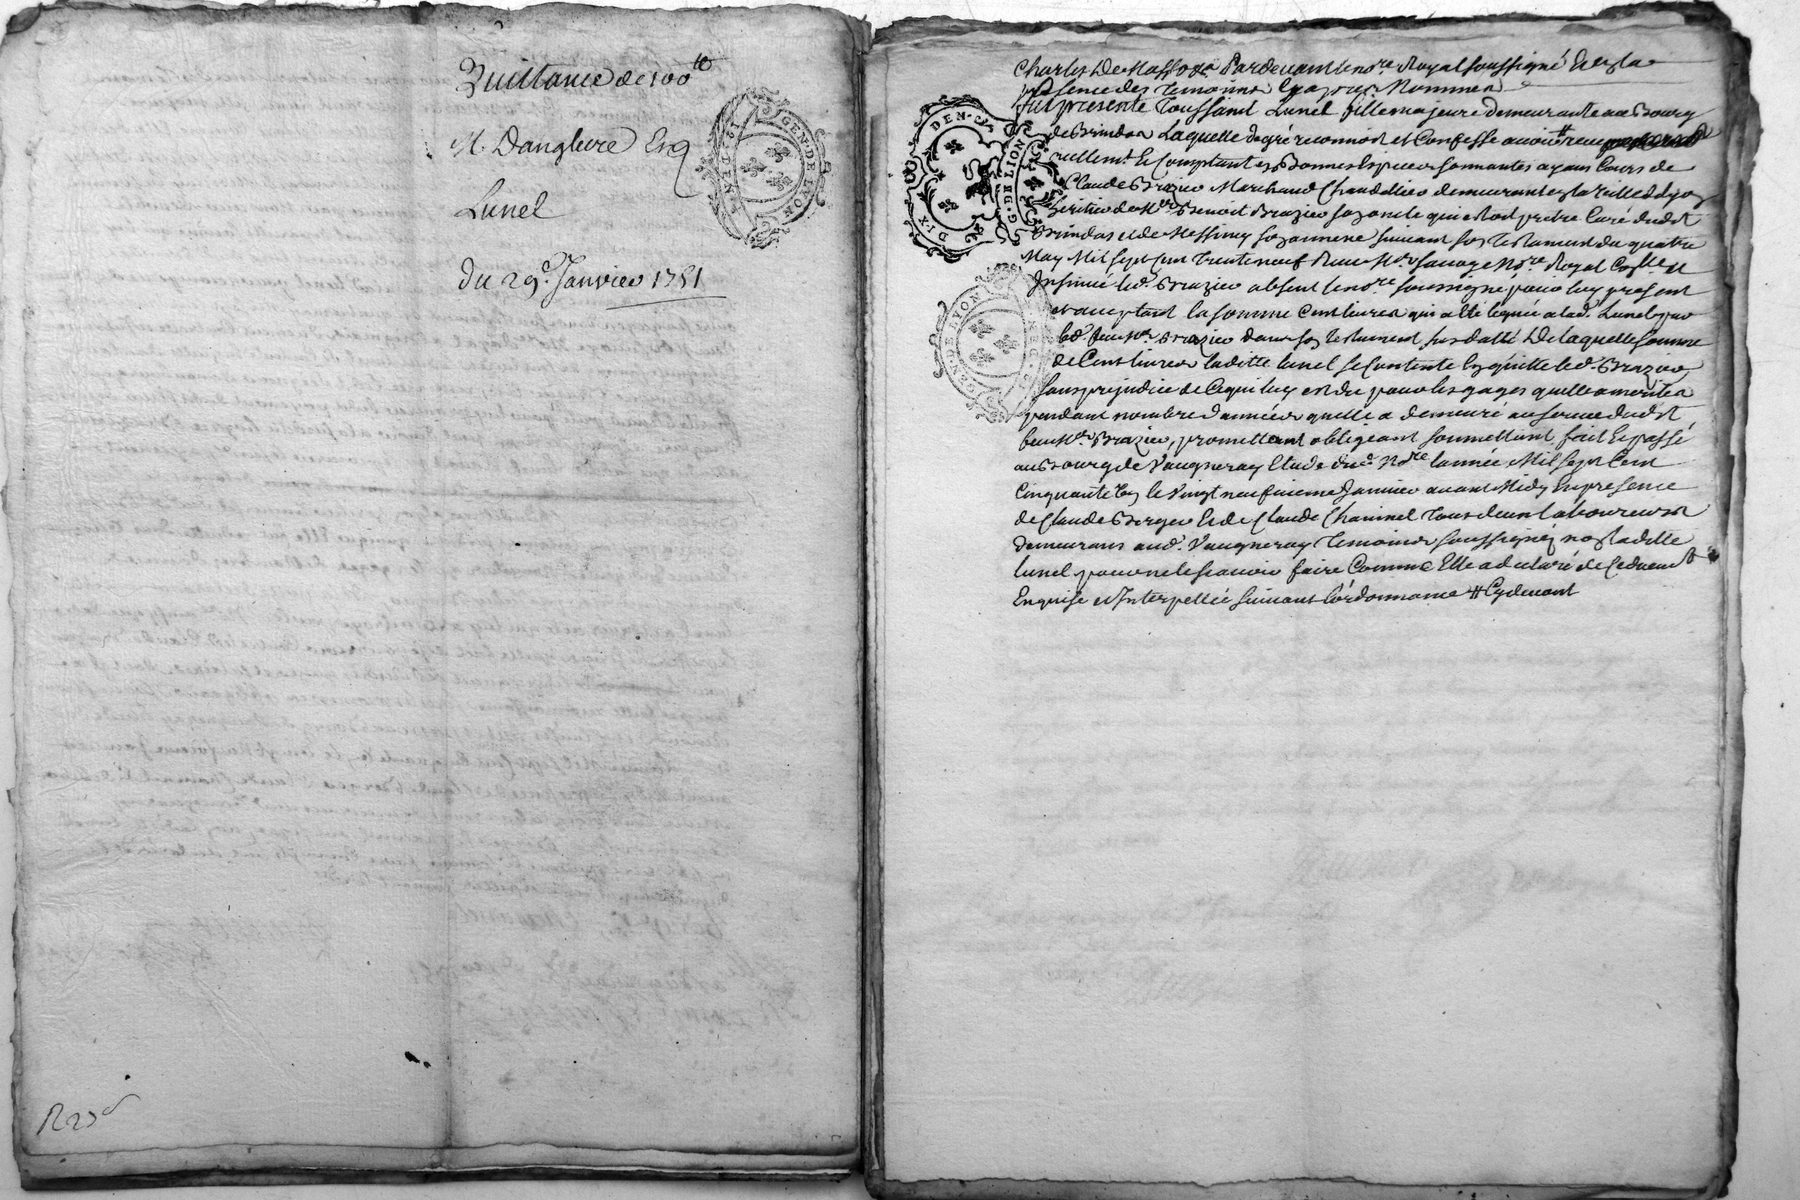 Quittance de 100 ᵗᵗ
M. Danglure Esq
Lunel
du 29e. Janvier 1751
R 20 s
GEN. DE LYON
Pardevant le nore. Royal soussigné Et en la
presence des temoins bas Nommes
fut presente Toussaint Lunel fille majeure demeurante au Bourg
de Brindas Laquelle de gré reconnoit et Confesse avoir # receu
réellemt. le Comptant en Bonnes Especes sonnantes ayant Cours de
Claude Brazier Marchand Chandellier demeurant en la ville de Lyon
heritier de Mre Benoit Brazier son oncle qui etoit pretre Curé dudit
Brindas et de Messimy son annexe suivant son Testament du quatre
May Mil sept cent Trente neuf Receu Mre Sauvage Nore Royal Controllé et
Insinué led. Brazier absent le nore. soussigné pour luy present
et acceptant la somme Cent livres qui a été leguée a lad. Lunel par
led. feu Mre. Brazier dans son Testament sus datté De laquelle somme
de Cent livres laditte Lunel se Contente En quitte led. Brazier,
sans prejudice de Ce qui luy est du pour les gages quelle a merités
pendant nombre d'années quelle a demeuré au service dudit
feu Mre Brazier, promettant obligeant soumettant, fait Et passé
au Bourg de Vaugneray Etude dud. Nore l'année Mil sept Cent
Cinquante Un le Vingt neufvieme Janvier avant Midy En presence
de Claude Berger Et de Claude Chaumel Tous deux laboureurs
demeurans aud. Vaugneray Temoins soussignéz non laditte
Lunel pour ne le scavoir faire Comme Elle a declaré de Ce
Enquise et Interpellée suivant l'ordonnance # Cy devant